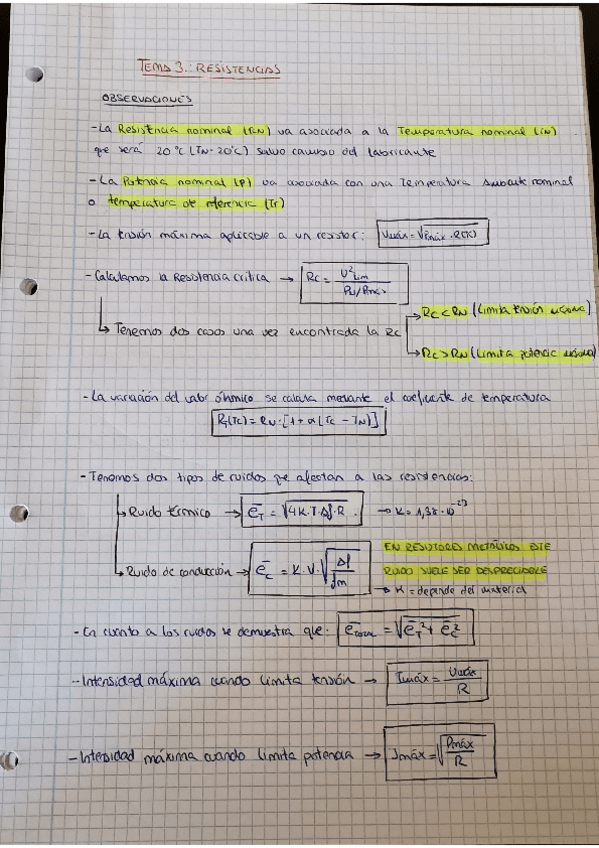 TEMA 3.: RESISTENCIAS
OBSERVACIONES
- La Resistencia nominal (RN) va asociada a la Temperatura nominal (TN)
que será 20°C (TN=20°C) salvo cambio del fabricante
- La Potencia nominal (P) va asociada con una Temperatura ambiente nominal
o temperatura de referencia (Tr)
- La tensión máxima aplicable a un resistor: Umáx = √Pmáx · R(Tc)
- Calculamos la Resistencia crítica → Rc = U²Lim / PN/Pmáx
↳ Tenemos dos casos una vez encontrada la Rc
→ Rc < RN (Limita tensión máxima)
→ Rc > RN (Limita potencia máxima)
- La variación del valor óhmico se calcula mediante el coeficiente de temperatura
RT(Tc) = RN · [1 + α (Tc - TN)]
- Tenemos dos tipos de ruidos que afectan a las resistencias:
→ Ruido térmico → eT = √4K·T·Δf·R → K = 1,38·10⁻²³
→ Ruido de conducción → ec = K·V·√Δf/fm
EN RESISTORES METÁLICOS ESTE
RUIDO SUELE SER DESPRECIABLE
→ K = depende del material
- En cuanto a los ruidos se demuestra que: eTotal = √eT² + ec²
- Intensidad máxima cuando limita tensión → Imáx = Umáx / R
- Intensidad máxima cuando limita potencia → Imáx = √Pmáx / R